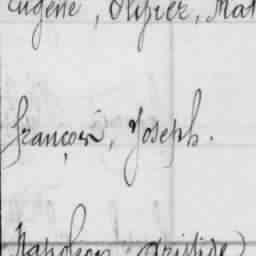 Eugène, Olivier, Mat
françois, Joseph.
Napoléon Aristide)